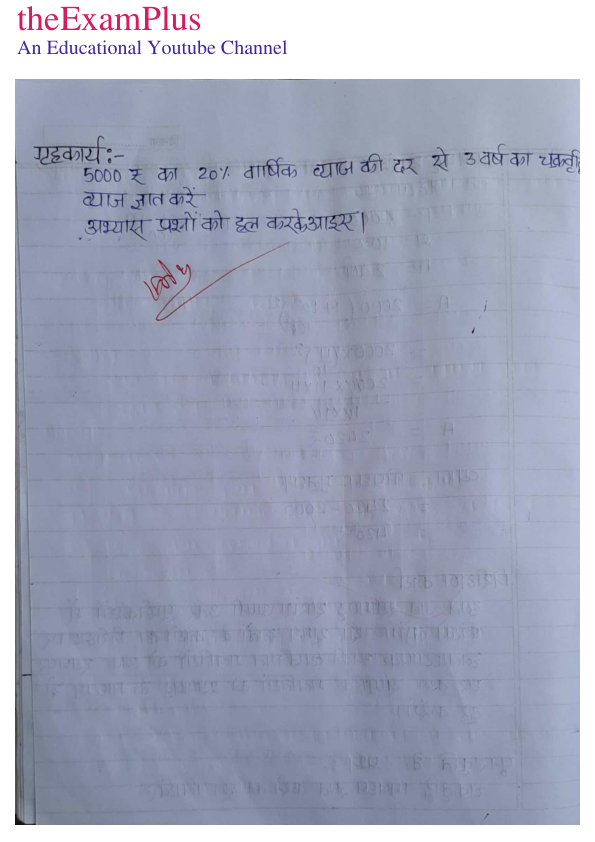 theExamPlus
An Educational Youtube Channel
गृहकार्य:-
5000 ₹ का 20% वार्षिक व्याज की दर से 3 वर्ष का चक्रवृ
व्याज ज्ञात करें
अभ्यास प्रश्नों को हल करके आइए।